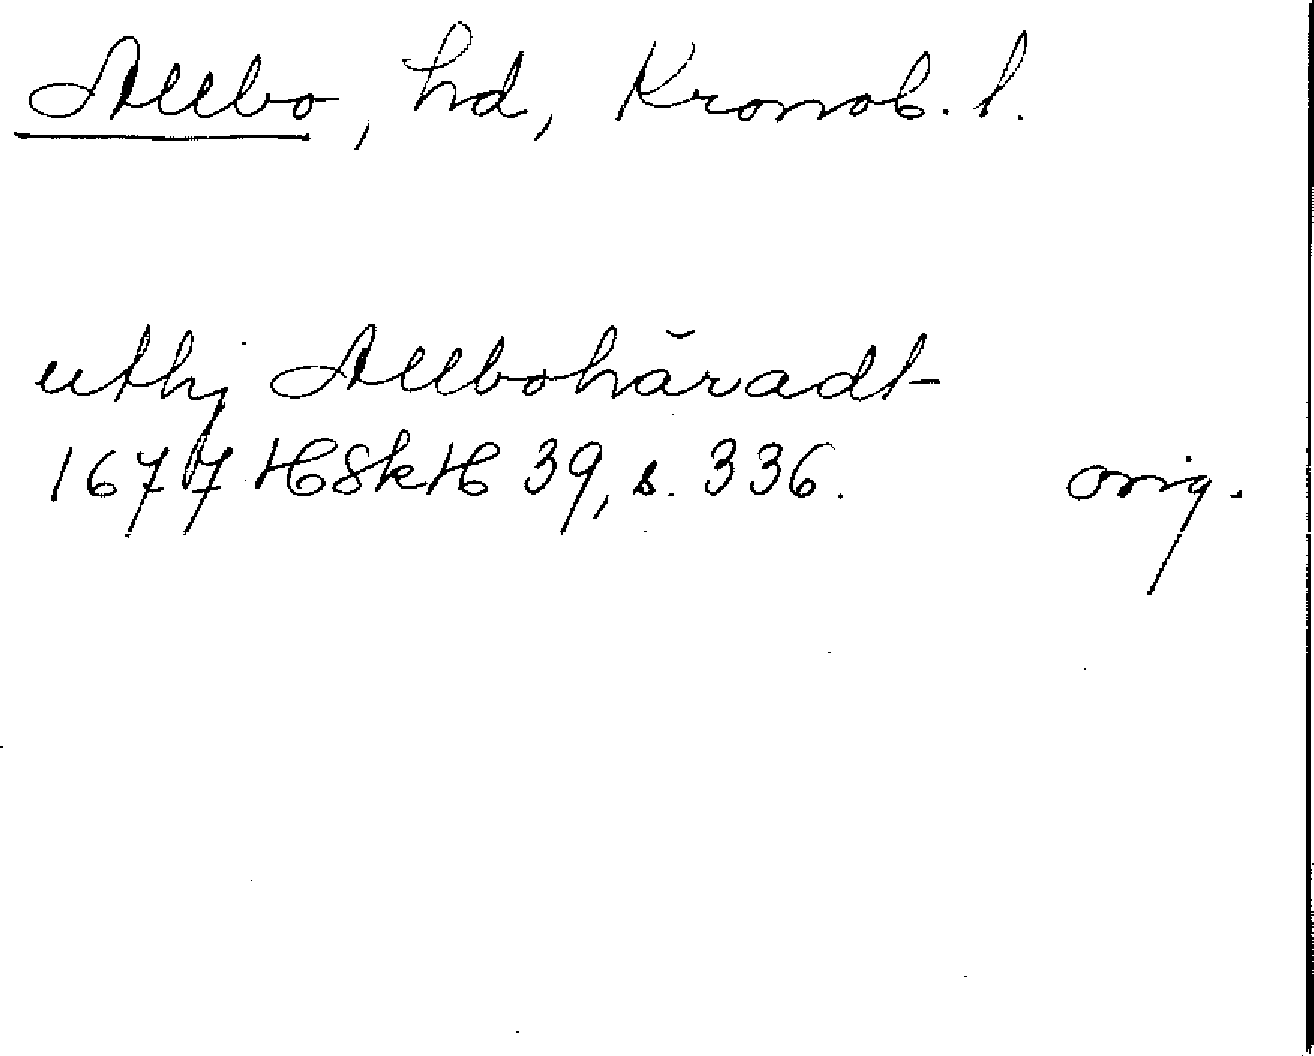 Allbo, hd, Kronob. l.
uthj Allbohäradt
1677 HSkH 39, s. 336. orig.